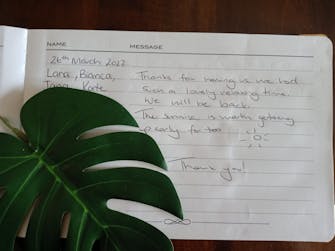 NAME MESSAGE
26th March 2022
Lana, Bianca, Thanks for having us we had
Kate such a lovely relaxing time.
We will be back.
The sunrise is worth getting
ready for too
Thank you!